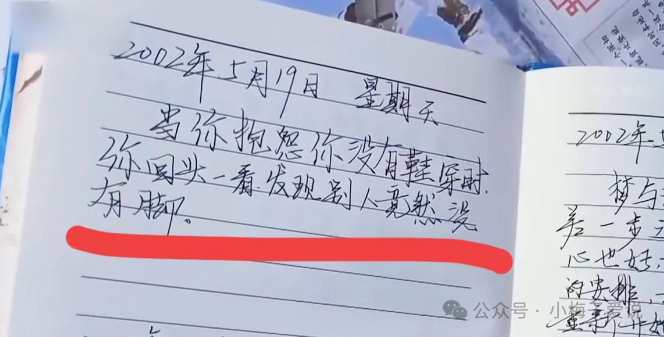 2002年5月19日 星期天
当你抱怨你没有鞋穿时,
你回头一看发现别人竟然没
有脚。
2002年5
梦与
若一步
心也好,
的安排,一
重新开始
公众号·小梅子爱说